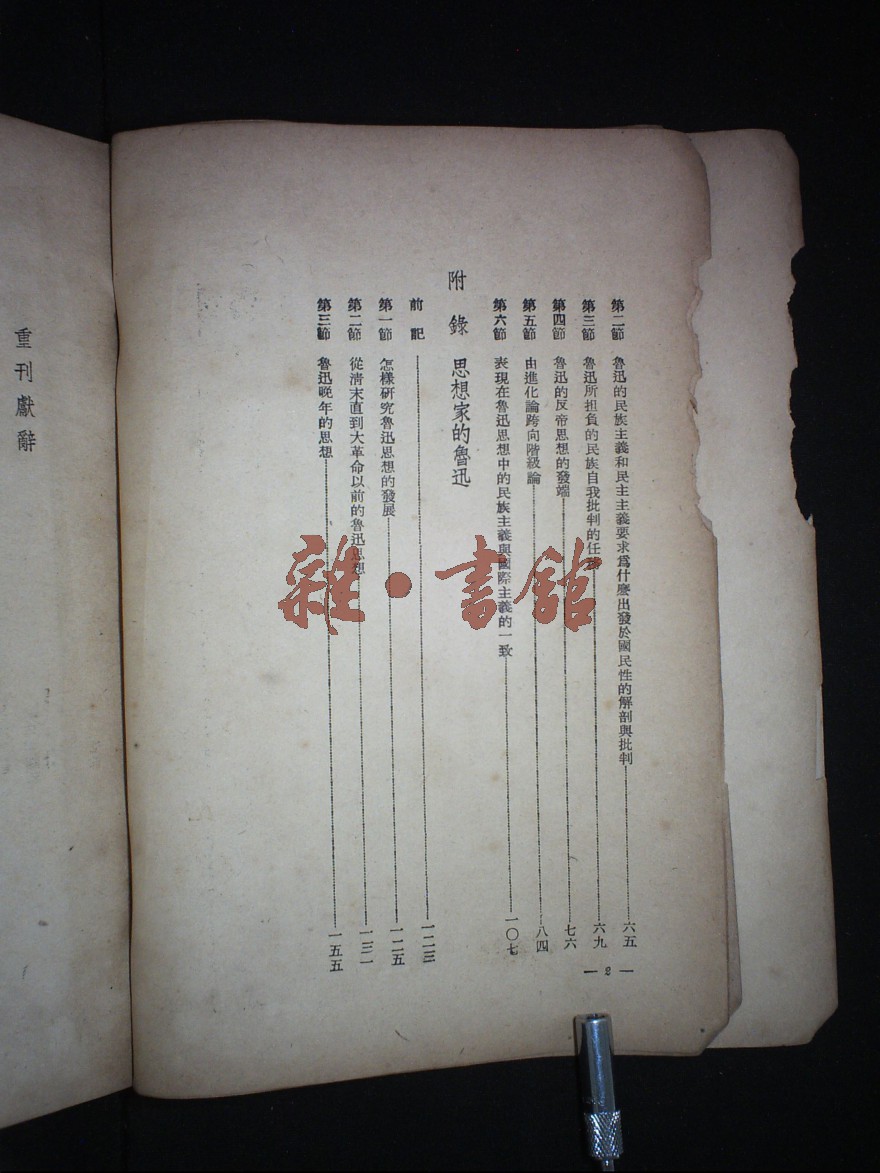 第二節　魯迅的民族主義和民主主義要求爲什麽出發於國民性的解剖與批判……六五
第三節　魯迅所担負的民族自我批判的任務……六九
第四節　魯迅的反帝思想的發端……七六
第五節　由進化論跨向階級論……八四
第六節　表現在魯迅思想中的民族主義與國際主義的一致……一〇七
附錄　思想家的魯迅
前記……一二三
第一節　怎樣研究魯迅思想的發展……一二五
第二節　從淸末直到大革命以前的魯迅思想……一三一
第三節　魯迅晚年的思想……一五五
— 2 —
重刊獻辭
雜·書館